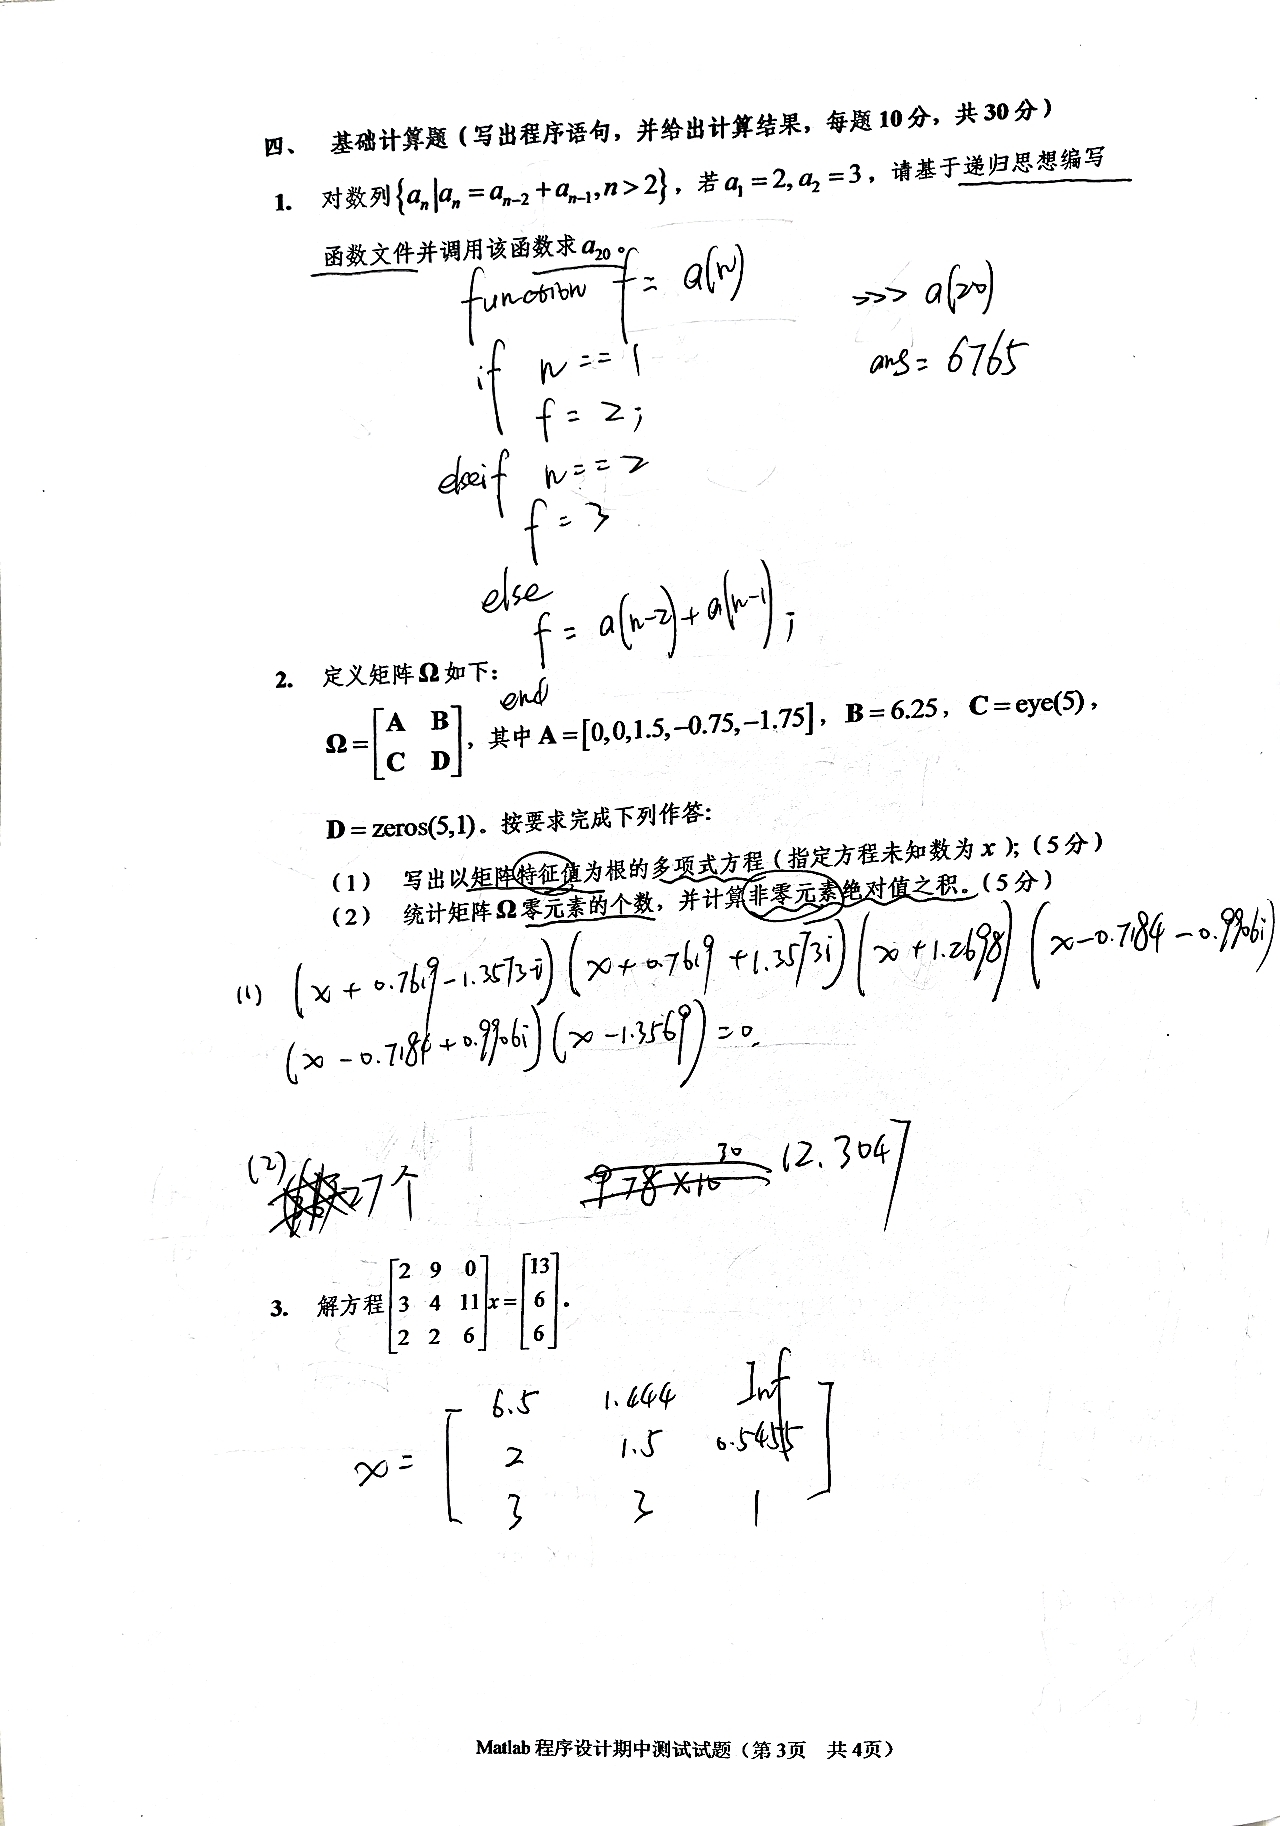 四、 基础计算题（写出程序语句，并给出计算结果，每题10分，共30分）
1. 对数列{aₙ|aₙ=aₙ₋₂+aₙ₋₁,n>2}，若a₁=2,a₂=3，请基于递归思想编写
函数文件并调用该函数求a₂₀。
function f = a(n)
>>> a(20)
if n == 1
ans = 6765
f = 2;
elseif n == 2
f = 3
else
f = a(n-2)+a(n-1);
end
2. 定义矩阵Ω如下：
Ω=[A B; C D]，其中A=[0,0,1.5,−0.75,−1.75]，B=6.25，C=eye(5)，
D=zeros(5,1)。按要求完成下列作答：
（1） 写出以矩阵特征值为根的多项式方程（指定方程未知数为x）；（5分）
（2） 统计矩阵Ω零元素的个数，并计算非零元素绝对值之积。（5分）
(1) (x+0.7619-1.3573i)(x+0.7619+1.3573i)(x+1.2698)(x-0.7184-0.9906i)
(x-0.7184+0.9906i)(x-1.3569)=0.
(2) 27个 12.3047
3. 解方程
2 9 0
3 4 11
2 2 6
x=
13
6
6
。
x =
6.5 1.444 Inf
2 1.5 0.5455
3 3 1
Matlab 程序设计期中测试试题（第3页 共4页）